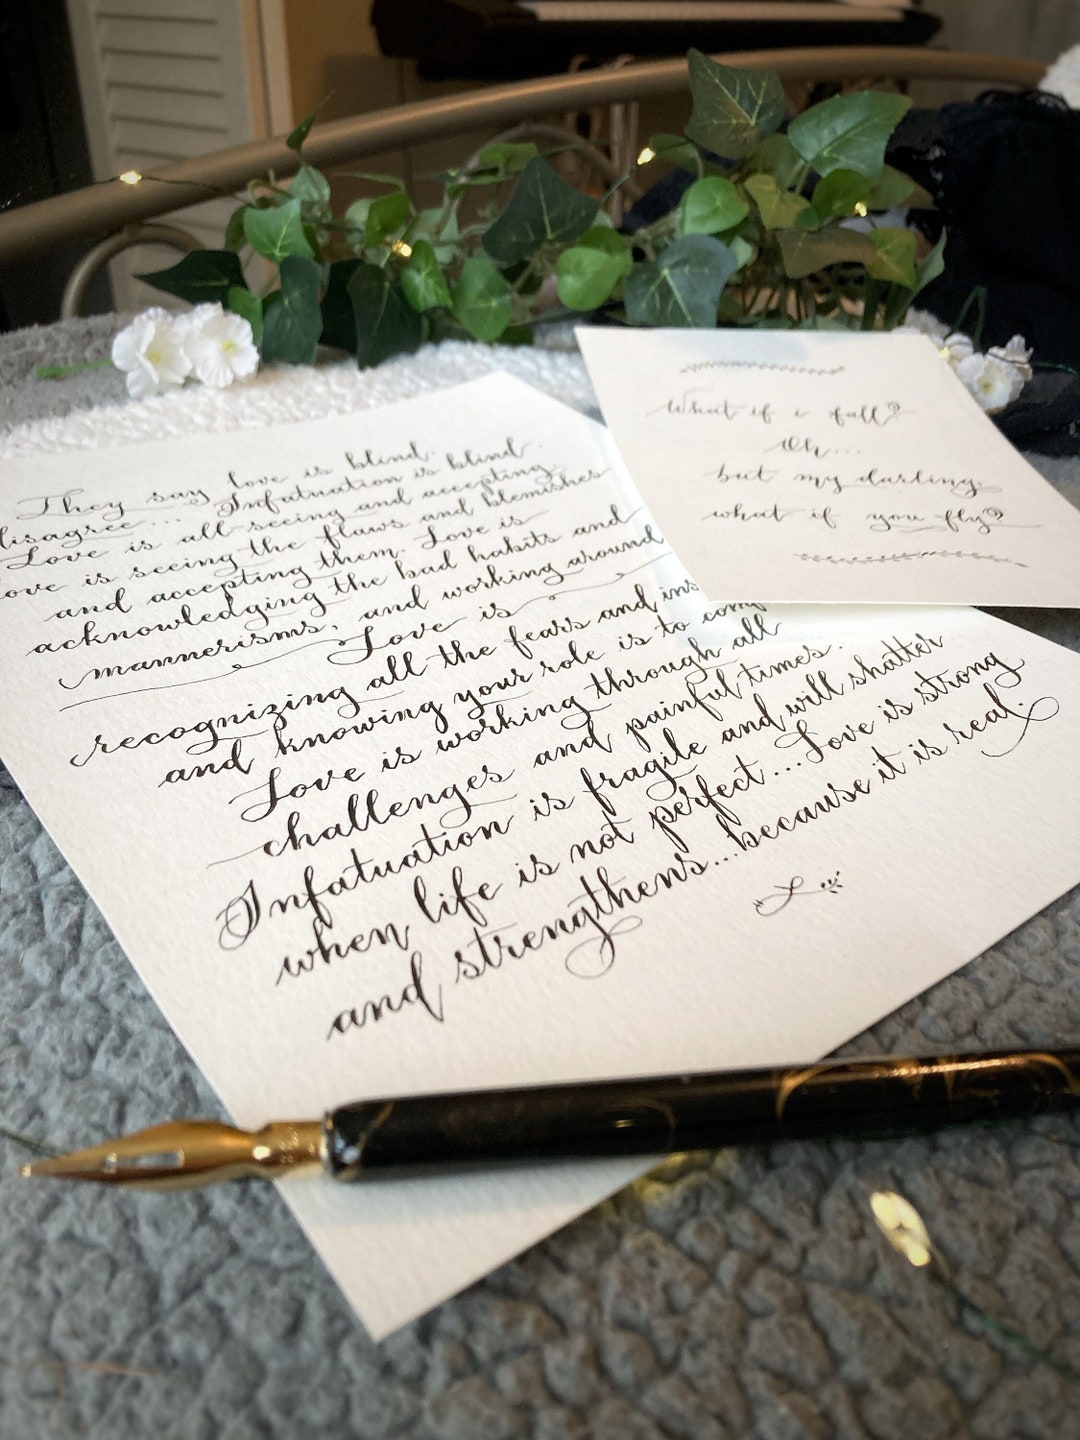 They say love is blind.
disagree... Infatuation is blind.
Love is all-seeing and accepting.
Love is seeing the flaws and blemishes
and accepting them. Love is
acknowledging the bad habits and
mannerisms, and working around
Love is
recognizing all the fears and ins
and knowing your role is to comf
Love is working through all
challenges and painful times.
Infatuation is fragile and will shatter
when life is not perfect... Love is strong
and strengthens... because it is real.
What if i fall?
Oh...
but my darling,
what if you fly?